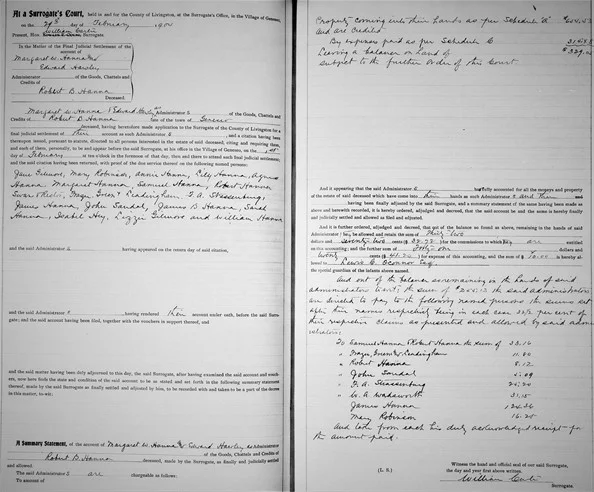 At a Surrogate's Court, held in and for the County of Livingston, at the Surrogate's Office, in the Village of Geneseo,
on the 29th day of February 1904
Present, Hon. William Carter Surrogate.
In the Matter of the Final Judicial Settlement of the
account of
Margaret W. Hanna &
Edward Hawley
Administrator of the Goods, Chattels and
Credits of
Robert B. Hanna
Deceased.
Margaret W. Hanna & Edward Hawley Administrator s of the Goods, Chattels and
Credits of Robert B. Hanna late of the town of Geneseo
deceased, having heretofore made application to the Surrogate of the County of Livingston for a
final judicial settlement of their account as such Administrator s and a citation having been
thereupon issued, pursuant to statute, directed to all persons interested in the estate of said deceased, citing and requiring them,
and each of them, personally, to be and appear before the said Surrogate, at his office in the Village of Geneseo, on the
day of February at ten o'clock in the forenoon of that day, then and there to attend such final judicial settlement;
and the said citation having been returned, with proof of due service thereof on the following named persons:
Jane Gilmore, Mary Robinson, Annie Hanna, Lilly Hanna, Agnes
Hanna, Margaret Hanna, Samuel Hanna, Robert Hanna
F. A. Strassenburg,
James Hanna, John Sandal, James B Hanna, Sarah
Hanna, Isabel Hoy, Lizzie Gilmore and William Hanna
and the said Administrator s having appeared on the return day of said citation,
and the said Administrator s having rendered their account under oath, before the said Surro-
gate; and the said account having been filed, together with the vouchers in support thereof, and
and the said matter having been duly adjourned to this day, the said Surrogate, after having examined the said account and vouch-
ers, now here finds the state and condition of the said account to be as stated and set forth in the following summary statement
thereof, made by the said Surrogate as finally settled and adjusted by him, to be recorded with and taken to be a part of the decree
in this matter, to wit:
A Summary Statement, of the account of Margaret W. Hanna & Edward Hawley as Administrator
of the Goods, Chattels and Credits of
Robert B. Hanna deceased, made by the Surrogate, as finally and judicially settled
and allowed:
The said Administrator s are chargeable as follows:
To amount of
Property coming into their hands as per Schedule "A"
And are credited
By expenses paid as per Schedule C
Leaving a balance on hand of
subject to the further order of this Court
And it appearing that the said Administrator s fully accounted for all the moneys and property
of the estate of said deceased which have come into their hands as such Administrator s and their
having been finally adjusted by the said Surrogate, and a summary statement of the same having been made as
above and herewith recorded, it is hereby ordered, adjudged and decreed, that the said account be and the same is hereby finally
and judicially settled and allowed as filed and adjusted.
And it is further ordered, adjudged and decreed, that out of the balance so found as above, remaining in the hands of said
Administrator s be allowed and retain the sum of Thirty two
dollars and seventy two cents ($32.72) for the commissions to which they are entitled
on this accounting; and the further sum of Forty one dollars and
twenty cents ($41.20) for expense of this accounting, and the sum of $10.00 is hereby al-
lowed to Lewis C. Oconnor Esq.
the special guardian of the infants above named.
And out of the balance so remaining in the hands of said
administrators to wit, the sum of the said administrators
are directed to pay to the following named persons the sums set
after their names respectively being in each case per cent of
their respective claims as presented and allowed by said admin
istrators
To Samuel Hanna & Robert Hanna the sum of 33.16
" Robert Hanna 8.12
" John Sandal
" F. A. Strassenburg
" W. A. Wadsworth 31.15
James Hanna
Mary Robinson 16.20
And take from each his duly acknowledged receipt for
the amount paid.
(L. S.)
Witness the hand and official seal of our said Surrogate,
the day and year first above written.
William Carter
Surrogate.